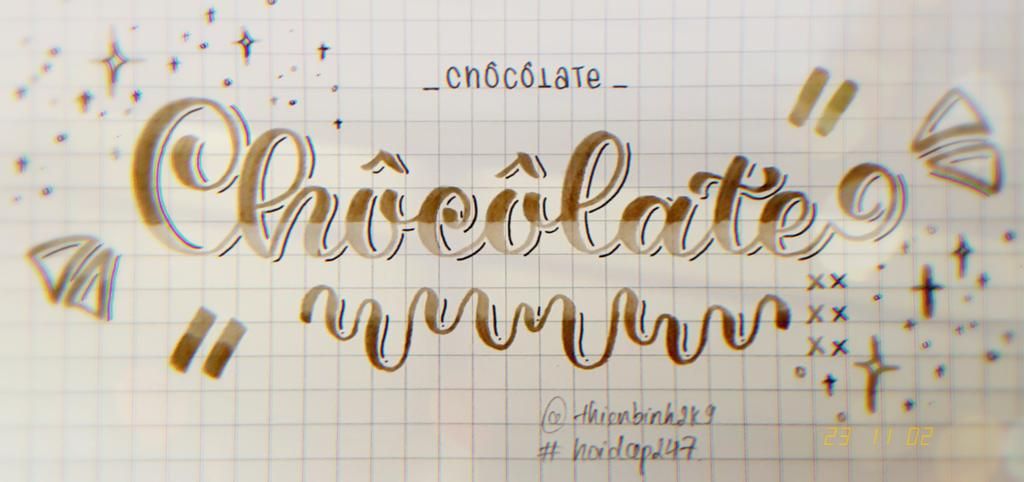 _ CHÔCÔLATE _
Chôcôlate
xx
xx
xx
@ thienbinh2k9
# hoidap247.
23 11 02